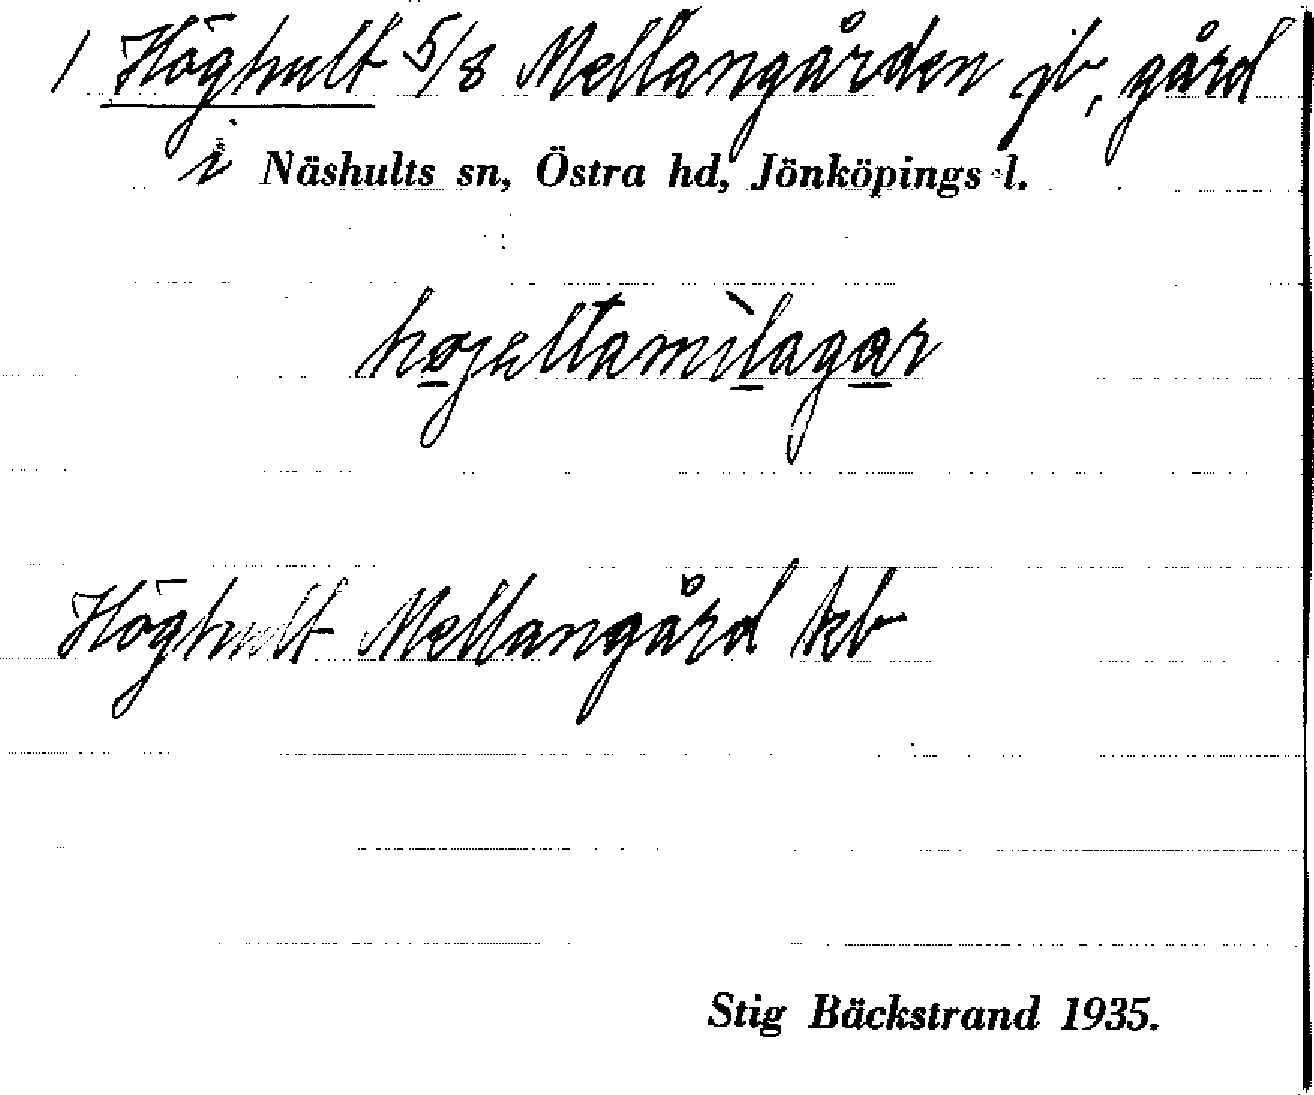 1 Höghult 5/8 Mellangården jb, gård
i Näshults sn, Östra hd, Jönköpings l.
Höghult Mellangård kb
Stig Bäckstrand 1935.